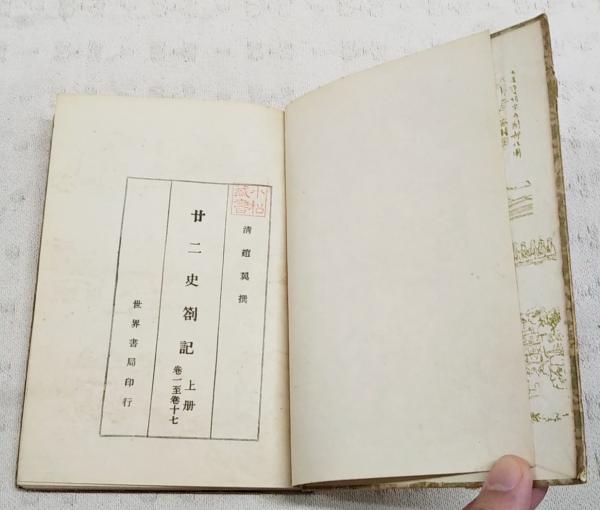 清趙翼撰
廿二史劄記 上册
卷一至卷十七
世界書局印行
小松
藏書